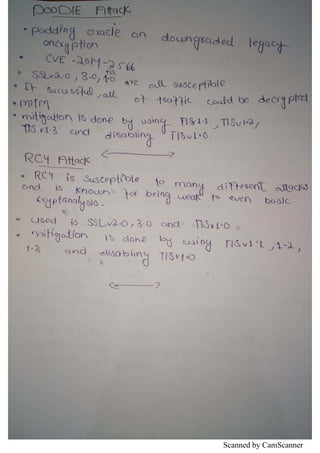 POODLE Attack
• padding oracle on downgraded legacy
encryption
• CVE-2014-3566
• SSLv2.0, 3.0, TLS 1.0 are all susceptible
• If successful, all of traffic could be decrypted
• MITM
• mitigation is done by using TLS 1.1, TLSv1.2,
TLS v1.3 and disabling TLSv1.0
RC4 Attack
• RC4 is susceptible to many different attacks
and is known for being weak to even basic
cryptanalysis.
• used is SSLv2.0, 3.0 and TLSv1.0
• mitigation is done by using TLSv1.1, 1.2,
1.3 and disabling TLSv1.0
Scanned by CamScanner